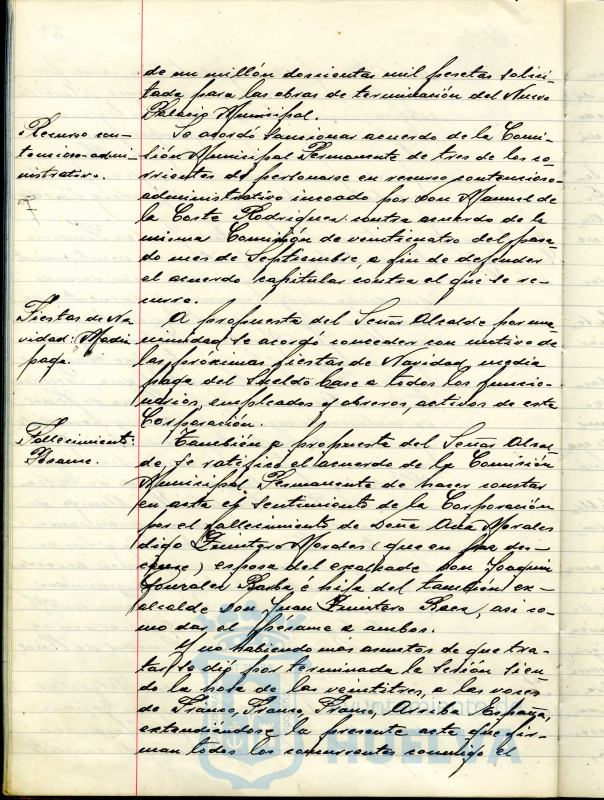 de un millón doscientas mil pesetas solici-
tada para las obras de terminación del Nuevo
Palacio Municipal.
Recurso con-
tencioso-admi-
nistrativo.
Se acordó sancionar acuerdo de la Comi-
sión Municipal Permanente de tres de los co-
rrientes de personarse en recurso contencioso-
administrativo incoado por Don Manuel de
la Corte Rodríguez contra acuerdo de la
misma Comisión de veinticuatro del pasa-
do mes de Septiembre a fin de defender
el acuerdo capitular contra el que se re-
curre.
Fiestas de Na-
vidad: Media
paga.
A propuesta del Señor Alcalde por una-
nimidad se acordó conceder con motivo de
las próximas fiestas de Navidad, media
paga del sueldo base a todos los funcio-
narios, empleados y obreros, activos de esta
Corporación.
Fallecimiento:
Pésame.
También a propuesta del Señor Alcal-
de, se ratificó el acuerdo de la Comisión
Municipal Permanente de hacer constar
en acta el sentimiento de la Corporación
por el fallecimiento de Doña Ana Morales
digo Quintero Morales (que en paz des-
canse) esposa del exalcalde Don Joaquin
Gonzalez Barba é hija del también ex-
alcalde Don Juan Quintero Baez, asi co-
mo dar el pésame a ambos.
Y no habiendo más asuntos de que tra-
tar, se dió por terminada la sesión sien-
do la hora de las veintitres, a las voces
de Franco, Franco, Franco, Arriba España,
extendiéndose la presente acta que fir-
man todos los concurrentes conmigo el
Ayuntamiento de
HUELVA